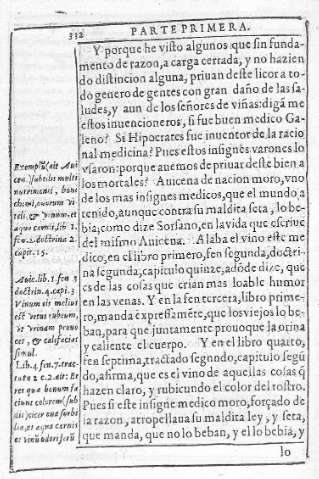 312
PARTE PRIMERA.
Y porque he visto algunos que sin funda-
mento de razon, a carga cerrada, y no hazien
do distincion alguna, priuan deste licor a to-
do genero de gentes con gran daño de las sa-
ludes, y aun de los señores de viñas: digã me
estos inuencioneros, si fue buen medico Ga-
leno? Si Hipocrates fue inuentor de la racio
nal medicina? Pues estos insignes varones lo
vsaron: porque auemos de priuar deste bien a
los mortales? Auicena de nacion moro, vno
de los mas insignes medicos, que el mundo a
tenido, aunque contra su maldita seta, lo be-
bia, como dize Sorsano, en la vida que escriue
del mismo Auicena. Alaba el vino este me
dico, en el libro primero, fen segunda, doctri-
na segunda, capitulo quinze, adõde dize, que
es de las cosas que crian mas loable humor
en las venas. Y en la fen tercera, libro prime-
ro, manda expressamẽte, que los viejos lo be-
ban, para que juntamente prouoque la orina
y caliente el cuerpo. Y en el libro quarto,
fen septima, tractado segundo, capitulo segũ
do, afirma, que es el vino de aquellas cosas q̃
hazen claro, y rubicundo el color del rostro.
Pues si este insigne medico moro, forçado de
la razon, atropellaua su maldita ley, y seta,
que manda, que no lo beban, y el lo bebia, y
lo
Exemplũ, ait Aui
cen.
nutrimenti, boni
chimi, ouorum vi
teli, & vinum, et
aqua carnis, lib. 1.
fen. 2. doctrina 2.
capit. 15.
Auic. lib. 1. fen 3
doctrin. 4. capi. 3
Vinum eis melius
est vetus rubeum,
vt vrinam prouo
cet, & calefaciat
simul.
Lib. 4. fen. 7. trac-
tatu 2 c. 2. ait: Et
res qua bonum fa
ciunt colorem, sub
et aqua carnis